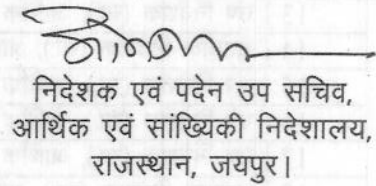 निदेशक एवं पदेन उप सचिव,
आर्थिक एवं सांख्यिकी निदेशालय,
राजस्थान, जयपुर।